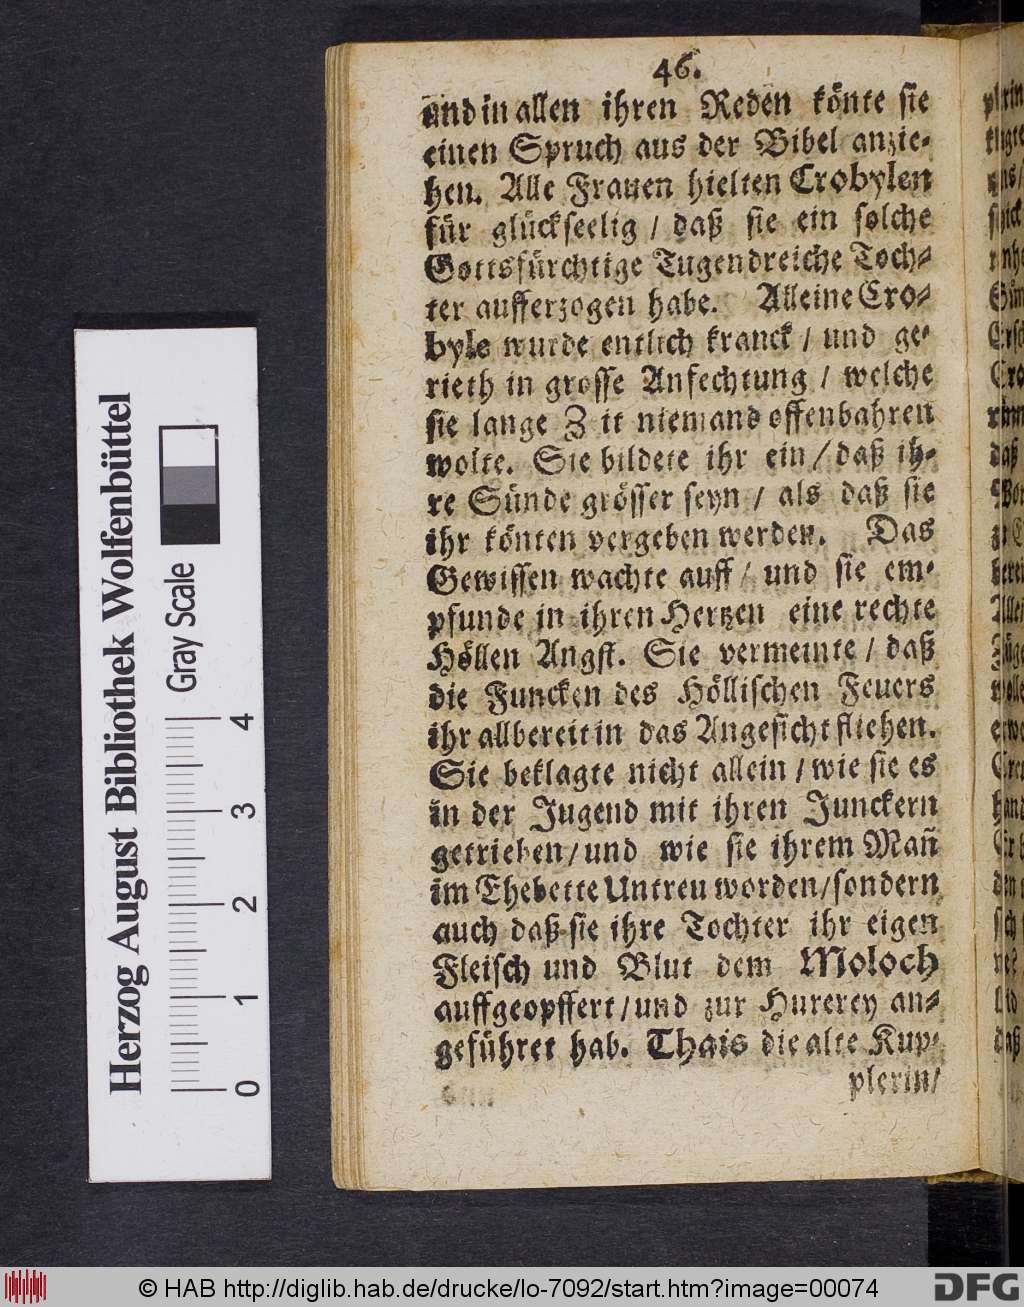 46.
und in allen ihren Reden könte sie
einen Spruch aus der Bibel anzie-
hen. Alle Frauen hielten Crobylen
für glückseelig / daß sie ein solche
Gottsfürchtige Tugendreiche Toch-
ter aufferzogen habe. Alleine Cro-
byle wurde entlich kranck / und ge-
rieth in grosse Anfechtung / welche
sie lange Z it niemand offenbahren
wolte. Sie bildete ihr ein / daß ih-
re Sünde grösser seyn / als daß sie
ihr könten vergeben werden. Das
Gewissen wachte auff / und sie em-
pfunde in ihren Hertzen eine rechte
Höllen Angst. Sie vermeinte / daß
die Funcken des Höllischen Feuers
ihr allbereit in das Angesicht fliehen.
Sie beklagte nicht allein / wie sie es
in der Jugend mit ihren Junckern
getrieben / und wie sie ihrem Mañ
im Ehebette Untreu worden / sondern
auch daß sie ihre Tochter ihr eigen
Fleisch und Blut dem Moloch
auffgeopffert / und zur Hurerey an-
geführet hab. Thais die alte Kup-
plerin /
Herzog August Bibliothek Wolfenbüttel
Gray Scale
0 1 2 3 4
© HAB http://diglib.hab.de/drucke/lo-7092/start.htm?image=00074
DFG